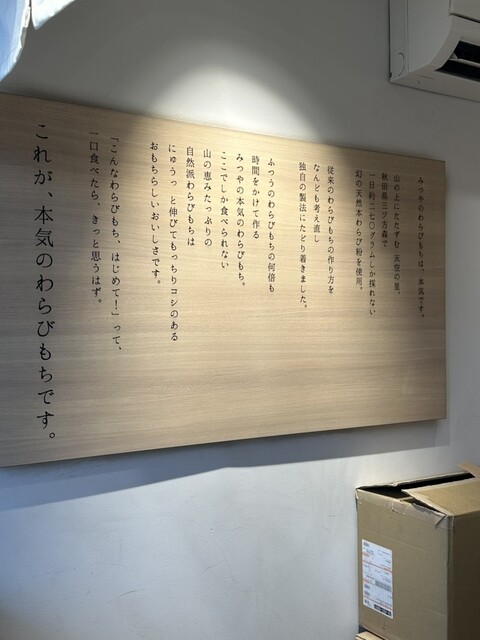 みつやのわらびもちは、本気です。
山の上にたたずむ 天空の里、
秋田県三ツ方森で
一日約二七〇グラムしか採れない
幻の天然本わらび粉を使用。
従来のわらびもちの作り方を
なんども考え直し
独自の製法にたどり着きました。
ふつうのわらびもちの何倍も
時間をかけて作る
みつやの本気のわらびもち。
ここでしか食べられない
山の恵みたっぷりの
自然派わらびもちは
にゅうっ と伸びてもっちりコシのある
おもちらしいおいしさです。
「こんなわらびもち、はじめて!」って、
一口食べたら、きっと思うはず。
これが、本気のわらびもちです。